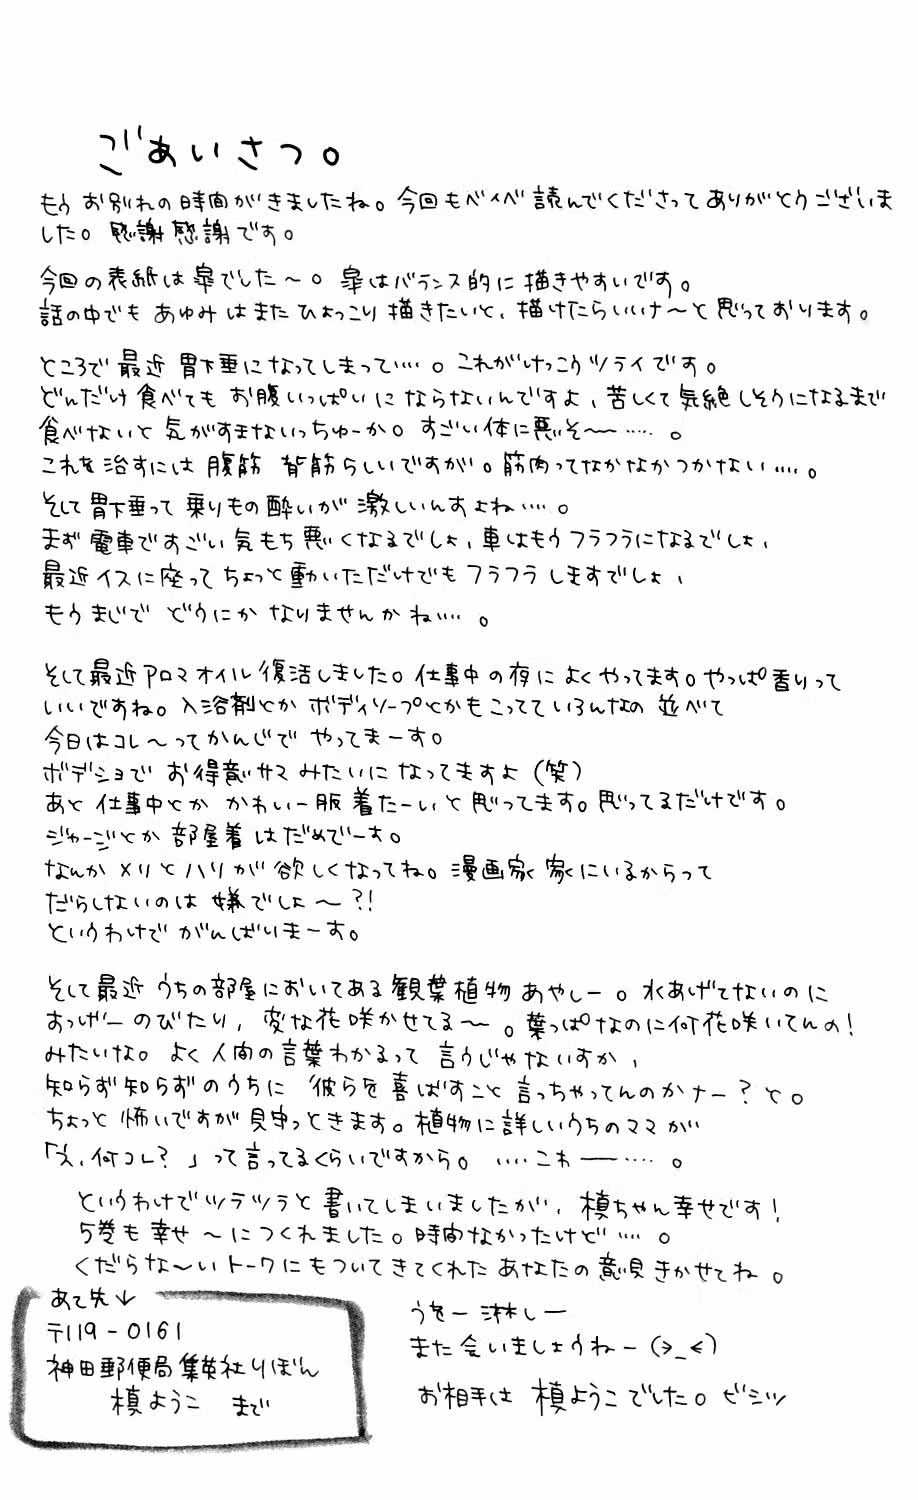 ごあいさつ。
もう お別れの時間がきましたね。今回もベイベ読んでくださってありがとうございま
した。感謝感謝です。
今回の表紙は皐でした〜。皐はバランス的に描きやすいです。
話の中でも あゆみはまたひょっこり描きたいと、描けたらいいナ〜と思っております。
ところで最近 胃下垂になってしまって‥‥。これがけっこうツライです。
どんだけ食べても お腹いっぱいに ならないんですよ、苦しくて気絶しそうになるまで
食べないと気がすまないっちゅーか。すごい体に悪そ〜‥‥。
これを治すには 腹筋 背筋らしいですが。筋肉ってなかなかつかない‥‥。
そして胃下垂って 乗りもの酔いが 激しいんすよね‥‥。
まず電車ですごい気もち悪くなるでしょ、車はもうフラフラになるでしょ、
最近イスに座ってちょっと動いただけでもフラフラしますでしょ、
もうまじで どうにか なりませんかね‥‥。
そして最近アロマオイル復活しました。仕事中の夜によくやってます。やっぱ香りって
いいですね。入浴剤とか ボディソープとかもこってていろんなの 並べて
今日はコレ〜ってかんじで やってまーす。
ボデショで お得意サマみたいになってますよ(笑)
あと 仕事中とか かわいー服着たーいと思ってます。思ってるだけです。
ジャージとか 部屋着はだめでーす。
なんか メリとハリが欲しくなってね。漫画家 家にいるからって
だらしないのは 嫌でしょ〜?!
というわけで がんばいまーす。
そして最近 うちの部屋においてある観葉植物あやしー。水あげてないのに
おっげーのびたり、変な花咲かせてる〜。葉っぱなのに何花咲いてんの!
みたいな。よく人間の言葉わかるって言うじゃないすか、
知らず知らずのうちに 彼らを喜ばすこと言っちゃってんのかナー?と。
ちょっと怖いですが見守っときます。植物に詳しいうちのママが
「え、何コレ?」って言ってるくらいですから。‥‥こわ――‥‥。
というわけでツラツラと書いてしまいましたが、槙ちゃん幸せです!
5巻も幸せ〜につくれました。時間なかったけど‥‥。
くだらな〜いトークにもついてきてくれたあなたの意見きかせてね。
あて先↓
〒119-0161
神田郵便局集英社りぼん
槙ようこ まで
うをー淋しー
また会いましょうねー(>_<)
お相手は 槙ようこでした。ビシッ